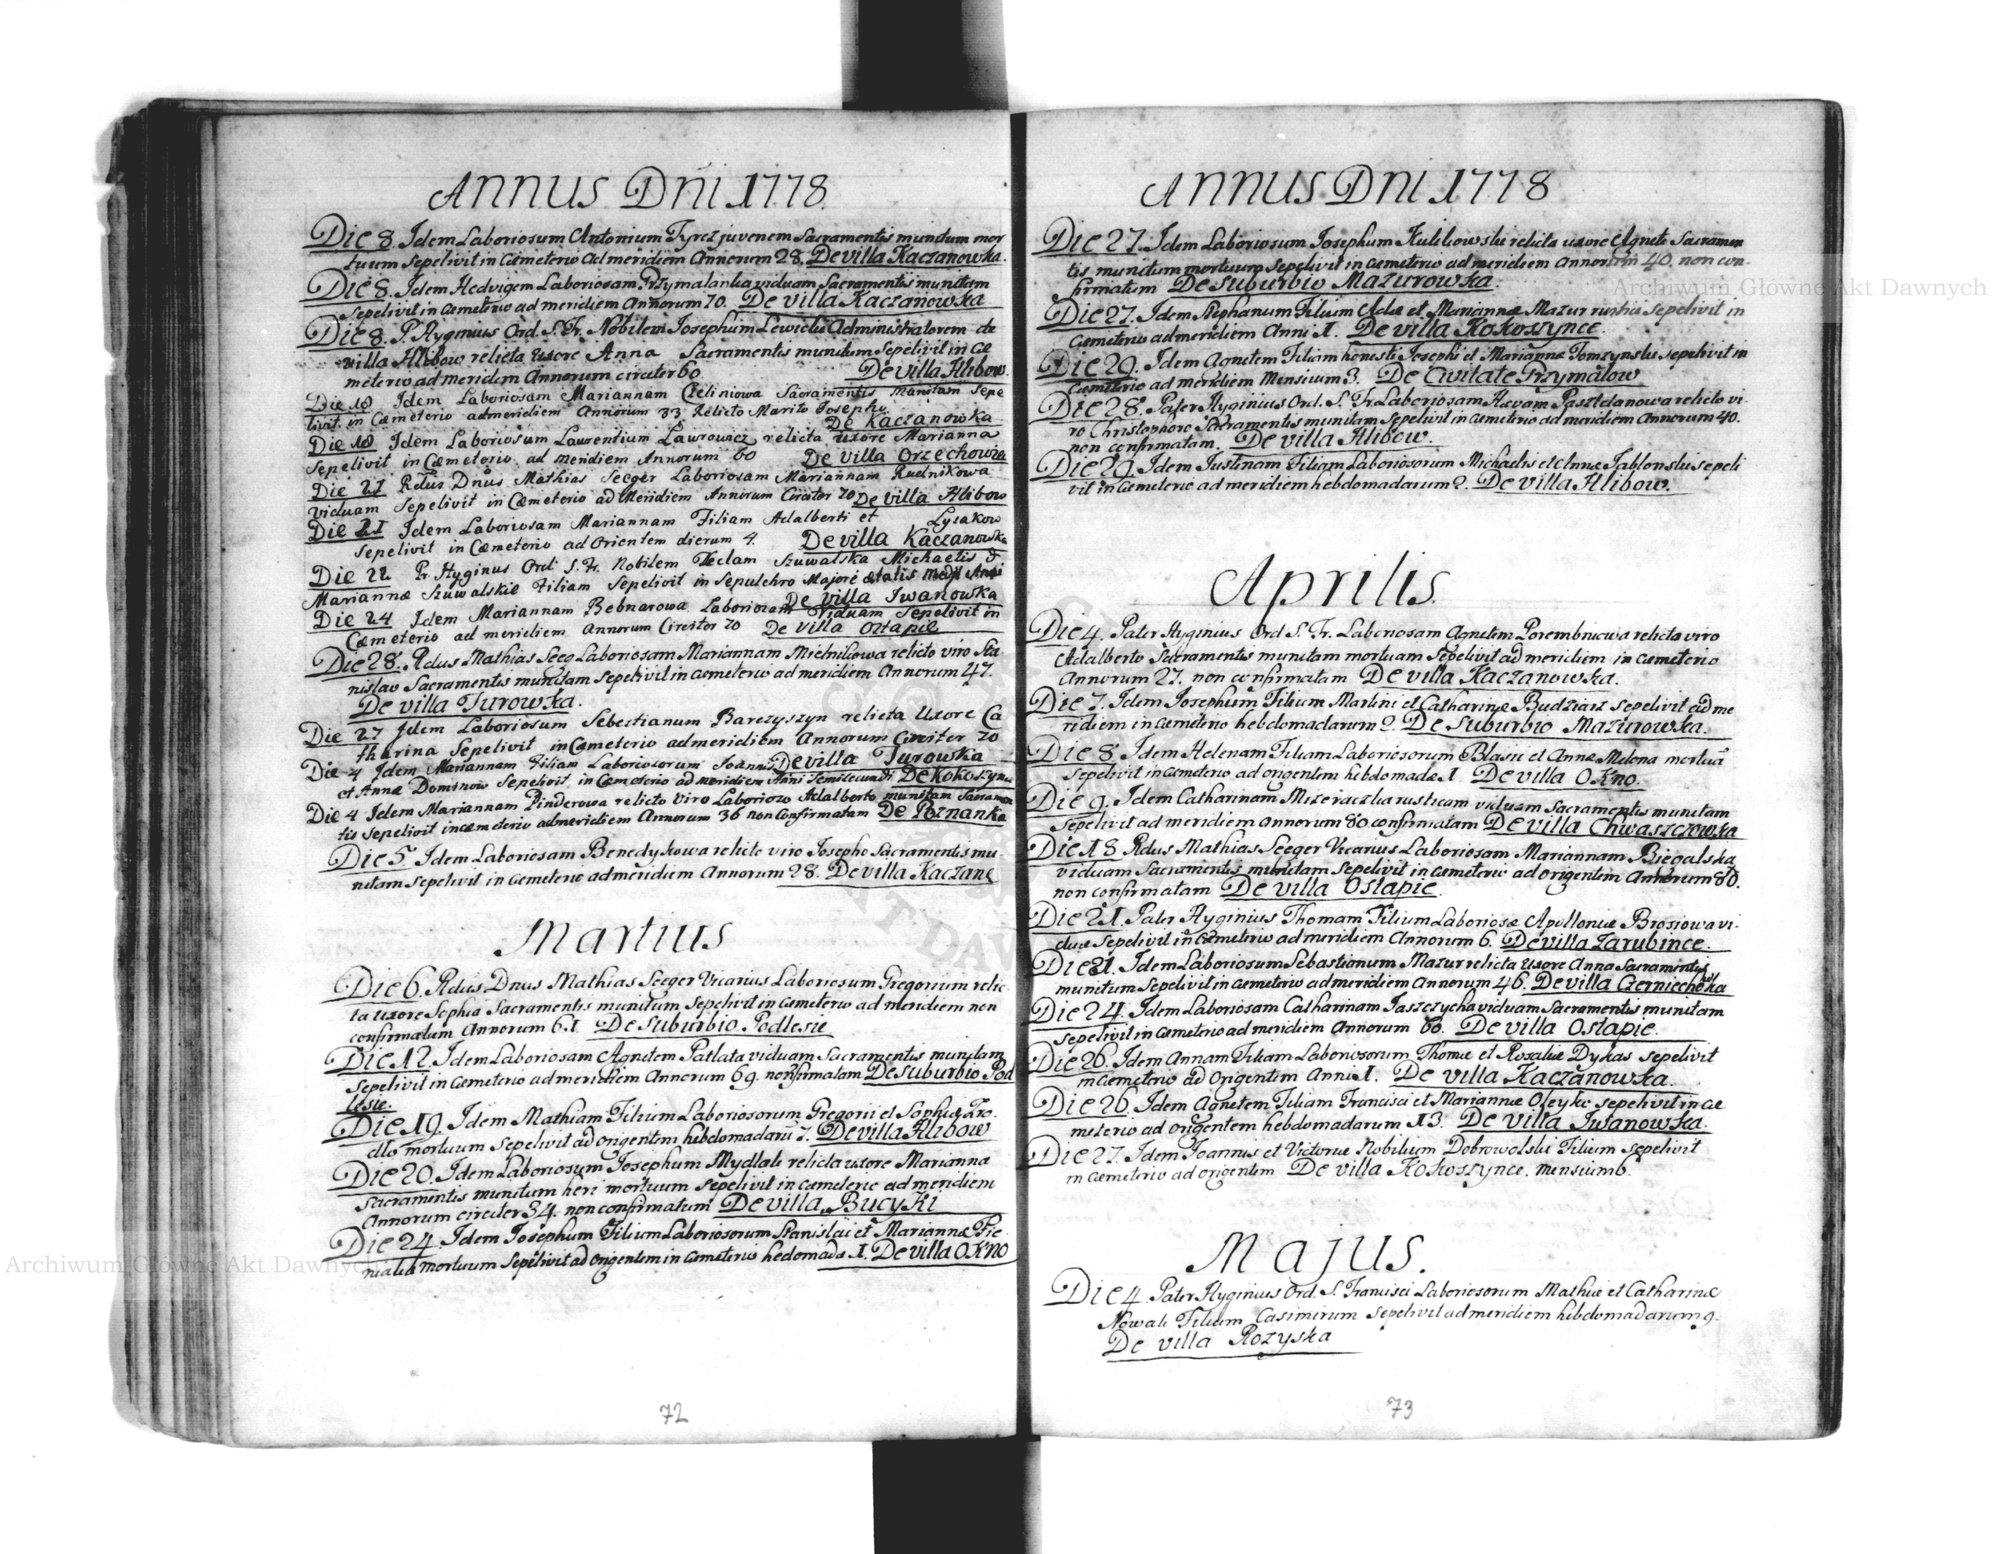 Annus Dni 1778.
Die 8. Idem Laboriosum Antonium Tyrcz juvenem Sacramentis munitum mor
tuum Sepelivit in Cæmeterio ad meridiem Annorum 28. De villa Kaczanowka.
Die 8. Idem Hedvigem Laboriosam Przymalanka viduam Sacramentis munitam
Sepelivit in Cæmeterio ad meridiem Annorum 70. De villa Kaczanowka
Die 8. P. Hyginius Ord. S. Fr. Nobilem Josephum Lewicki Administratorem de
villa Hlibow relicta Uxore Anna Sacramentis munitum Sepelivit in Cæ
meterio ad meridiem Annorum circiter 60 De villa Hlibow.
Die 18 Idem Laboriosam Mariannam Sacramentis munitam Sepe
livit in Cæmeterio ad meridiem Annorum 33 Relicto Marito Josepho. De Kaczanowka
Die 18 Idem Laboriosum Laurentium Laurowicz relicta uxore Marianna
Sepelivit in Cæmeterio ad meridiem Annorum 60 De villa Orzechowiec
Die 21 Rdus Dnus Mathias Seeger Laboriosam Mariannam Rudnikowa
viduam Sepelivit in Cæmeterio ad Meridiem Annorum Circiter 70 De villa Hlibow
Die 21 Idem Laboriosam Mariannam Filiam Adalberti et Lysakow
Sepelivit in Cæmeterio ad Orientem dierum 4 De villa Kaczanowka
Die 22 Pr. Hyginus Ord S. Fr. Nobilem Teclam Szuwalska Michaelis &
Mariannæ Szuwalskie Filiam Sepelivit in Sepulchro Majori ætatis Anni
De villa Iwanowka
Die 24 Idem Mariannam Bebnarowa Laboriosam Viduam Sepelivit in
Cæmeterio ad meridiem Annorum Circiter 70 De villa Ostapie
Die 28. Rdus Mathias Seeg Laboriosam Mariannam Mielnikowa relicto viro Sta
nislao Sacramentis munitam Sepelivit in Cæmeterio ad meridiem Annorum 47.
De villa Turowka.
Die 27 Idem Laboriosum Sebestianum Barczyszyn relicta Uxore Ca
tharina Sepelivit in Cæmeterio ad meridiem Annorum Circiter 70
De villa Turowka
Die 4 Idem Mariannam Filiam Laboriosorum Joannis
et Annæ Dominow Sepelivit in Cæmeterio ad meridiem Anni Semisecundi De Kokoszynce
Die 4 Idem Mariannam Pinderowa relicto viro Laborioso Adalberto munitam Sacramen
tis Sepelivit in cæmeterio ad meridiem Annorum 36 non Confirmatam De Poznanka
Die 5 Idem Laboriosam Benedykowa relicto viro Josepho Sacramentis mu
nitam sepelivit in Cæmeterio ad meridiem Annorum 28. De villa Kaczane
Martius
Die 6. Rdus Dnus Mathias Seeger Vicarius Laboriosum Gregorium relic
ta uxore Sophia Sacramentis munitum sepelivit in Cæmeterio ad meridiem non
confirmatum Annorum 61 De Suburbio Podlesie
Die 12. Idem Laboriosam Agnetem Patlata viduam Sacramentis munitam
Sepelivit in Cæmeterio ad meridiem Annorum 69. non confirmatam De Suburbio Pod
lesie.
Die 19. Idem Mathiam Filium Laboriosorum Gregorii et Sophiæ Fro
dlo mortuum sepelivit ad Origentem hebdomadarū 7. De villa Hlibow
Die 20. Idem Laboriosum Josephum Mydlak relicta uxore Marianna
Sacramentis munitum heri mortuum sepelivit in cæmeterio ad meridiem
Annorum circiter 34. non confirmatum De villa Bucyki
Die 24. Idem Josephum Filium Laboriosorum Stanislai et Mariannæ Pie
mortuum Sepelivit ad Origentem in Cæmeterio hedomada 1. De villa Okno
72
Annus Dni 1778
Die 27. Idem Laboriosum Josephum Kulikowski relicta uxore Agnete Sacramen
tis munitum mortuum Sepelivit in cæmeterio ad meridiem Annorum 40. non con
firmatum De Suburbio Mazurowka.
Die 27. Idem Stephanum Filium Adæ et Mariannæ Mazur rustici Sepelivit in
Cæmeterio ad meridiem Anni 1. De villa Kokoszynce.
Die 29. Idem Agnetem Filiam honesti Josephi et Mariannæ Tomzynski sepelivit in
Cæmeterio ad meridiem Mensium 3. De Civitate Grzymalow
Die 28. Pater Hyginius Ord. S. Fr. Laboriosam Hevam Pasztetanowa relicto vi
ro Christophoro Sacramentis munitam sepelivit in Cæmeterio ad meridiem Annorum 40.
non confirmatam. De villa Hlibow.
Die 29. Idem Justinam Filiam Laboriosorum Michaelis et Annæ Jablonski sepeli
vit in Cæmeterio ad meridiem hebdomadarum 2. De villa Hlibow.
Aprilis.
Die 4. Pater Hyginius Ord S. Fr. Laboriosam Agnetem Porembniowa relicto viro
Adalberto Sacramentis munitam mortuam Sepelivit ad meridiem in Cæmeterio
Annorum 27. non confirmatam De villa Kaczanowka.
Die 7. Idem Josephum Filium Martini et Catharinæ Budziasz sepelivit ad me
ridiem in Cæmeterio hebdomadarum 2. De Suburbio Mazurowka.
Die 8. Idem Helenam Filiam Laboriosorum Blasii et Annæ Melena mortuā
Sepelivit in Cæmeterio ad origentem hebdomadæ 1 De villa Okno.
Die 9. Idem Catharinam Mizeraczka rusticam viduam Sacramentis munitam
Sepelivit ad meridiem Annorum 80 confirmatam De villa Chwaszczowka
Die 18 Rdus Mathias Seeger Vicarius Laboriosam Mariannam Biegalska
viduam Sacramentis munitam sepelivit in cæmeterio ad origentem Annorum 80.
non confirmatam De villa Ostapie.
Die 21. Pater Hyginius Thomam Filium Laboriosæ Apolloniæ Brosiowa vi
duæ Sepelivit in Cæmeterio ad meridiem Annorum 6. De villa Zarubince.
Die 21. Idem Laboriosum Sebastianum Mazur relicta uxore Anna Sacramentis
munitum Sepelivit in Cæmeterio ad meridiem Annorum 46. De villa Czerniechowka
Die 24. Idem Laboriosam Catharinam Jaszczycha viduam Sacramentis munitam
Sepelivit in Cæmeterio ad meridiem Annorum 60. De villa Ostapie.
Die 26. Idem Annam Filiam Laboriosorum Thomæ et Rosaliæ Dykas sepelivit
in Cæmeterio ad Origentem Anni 1. De villa Kaczanowka.
Die 26 Idem Agnetem Filiam Francisci et Mariannæ Oleyko sepelivit in cæ
meterio ad origentem hebdomadarum 13. De villa Iwanowka.
Die 27. Idem Joannis et Victoriæ Nobilium Dobrowolski Filium sepelivit
in Cæmeterio ad origentem De villa Kokoszynce. mensium 6.
Majus.
Die 4. Pater Hyginius Ord. S. Francisci Laboriosorum Mathiæ et Catharinæ
Nowak Filium Casimirum Sepelivit ad meridiem hebdomadarum 9.
De villa Rozyska
73
Archiwum Główne Akt Dawnych
Archiwum Główne Akt Dawnych